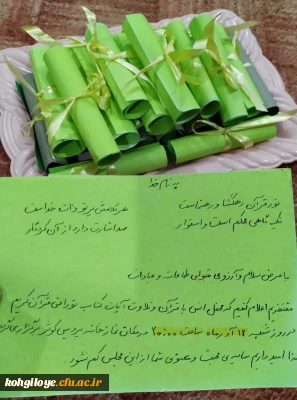 به نام خدا
نور قرآن رهگشا و رهنماست هر کلامش پرتو ذات خداست
تکیه گاهی محکم است و استوار صد اشارت دارد از آن کردگار
با عرض سلام و آرزوی قبولی طاعات و عبادات
مفتخرم اعلام کنم که محفل انس با قرآن و تلاوت آیات کتاب نورانی قرآن کریم
در روز شنبه ۱۲ آذر ماه ساعت ۲۰:۰۰ در مکان نماز خانه پردیس کوثر برگزار می
لذا امیدواریم سایه ی محبت و معنوی شما از این مجلس کم نشود
kohgiloye.cfu.ac.ir